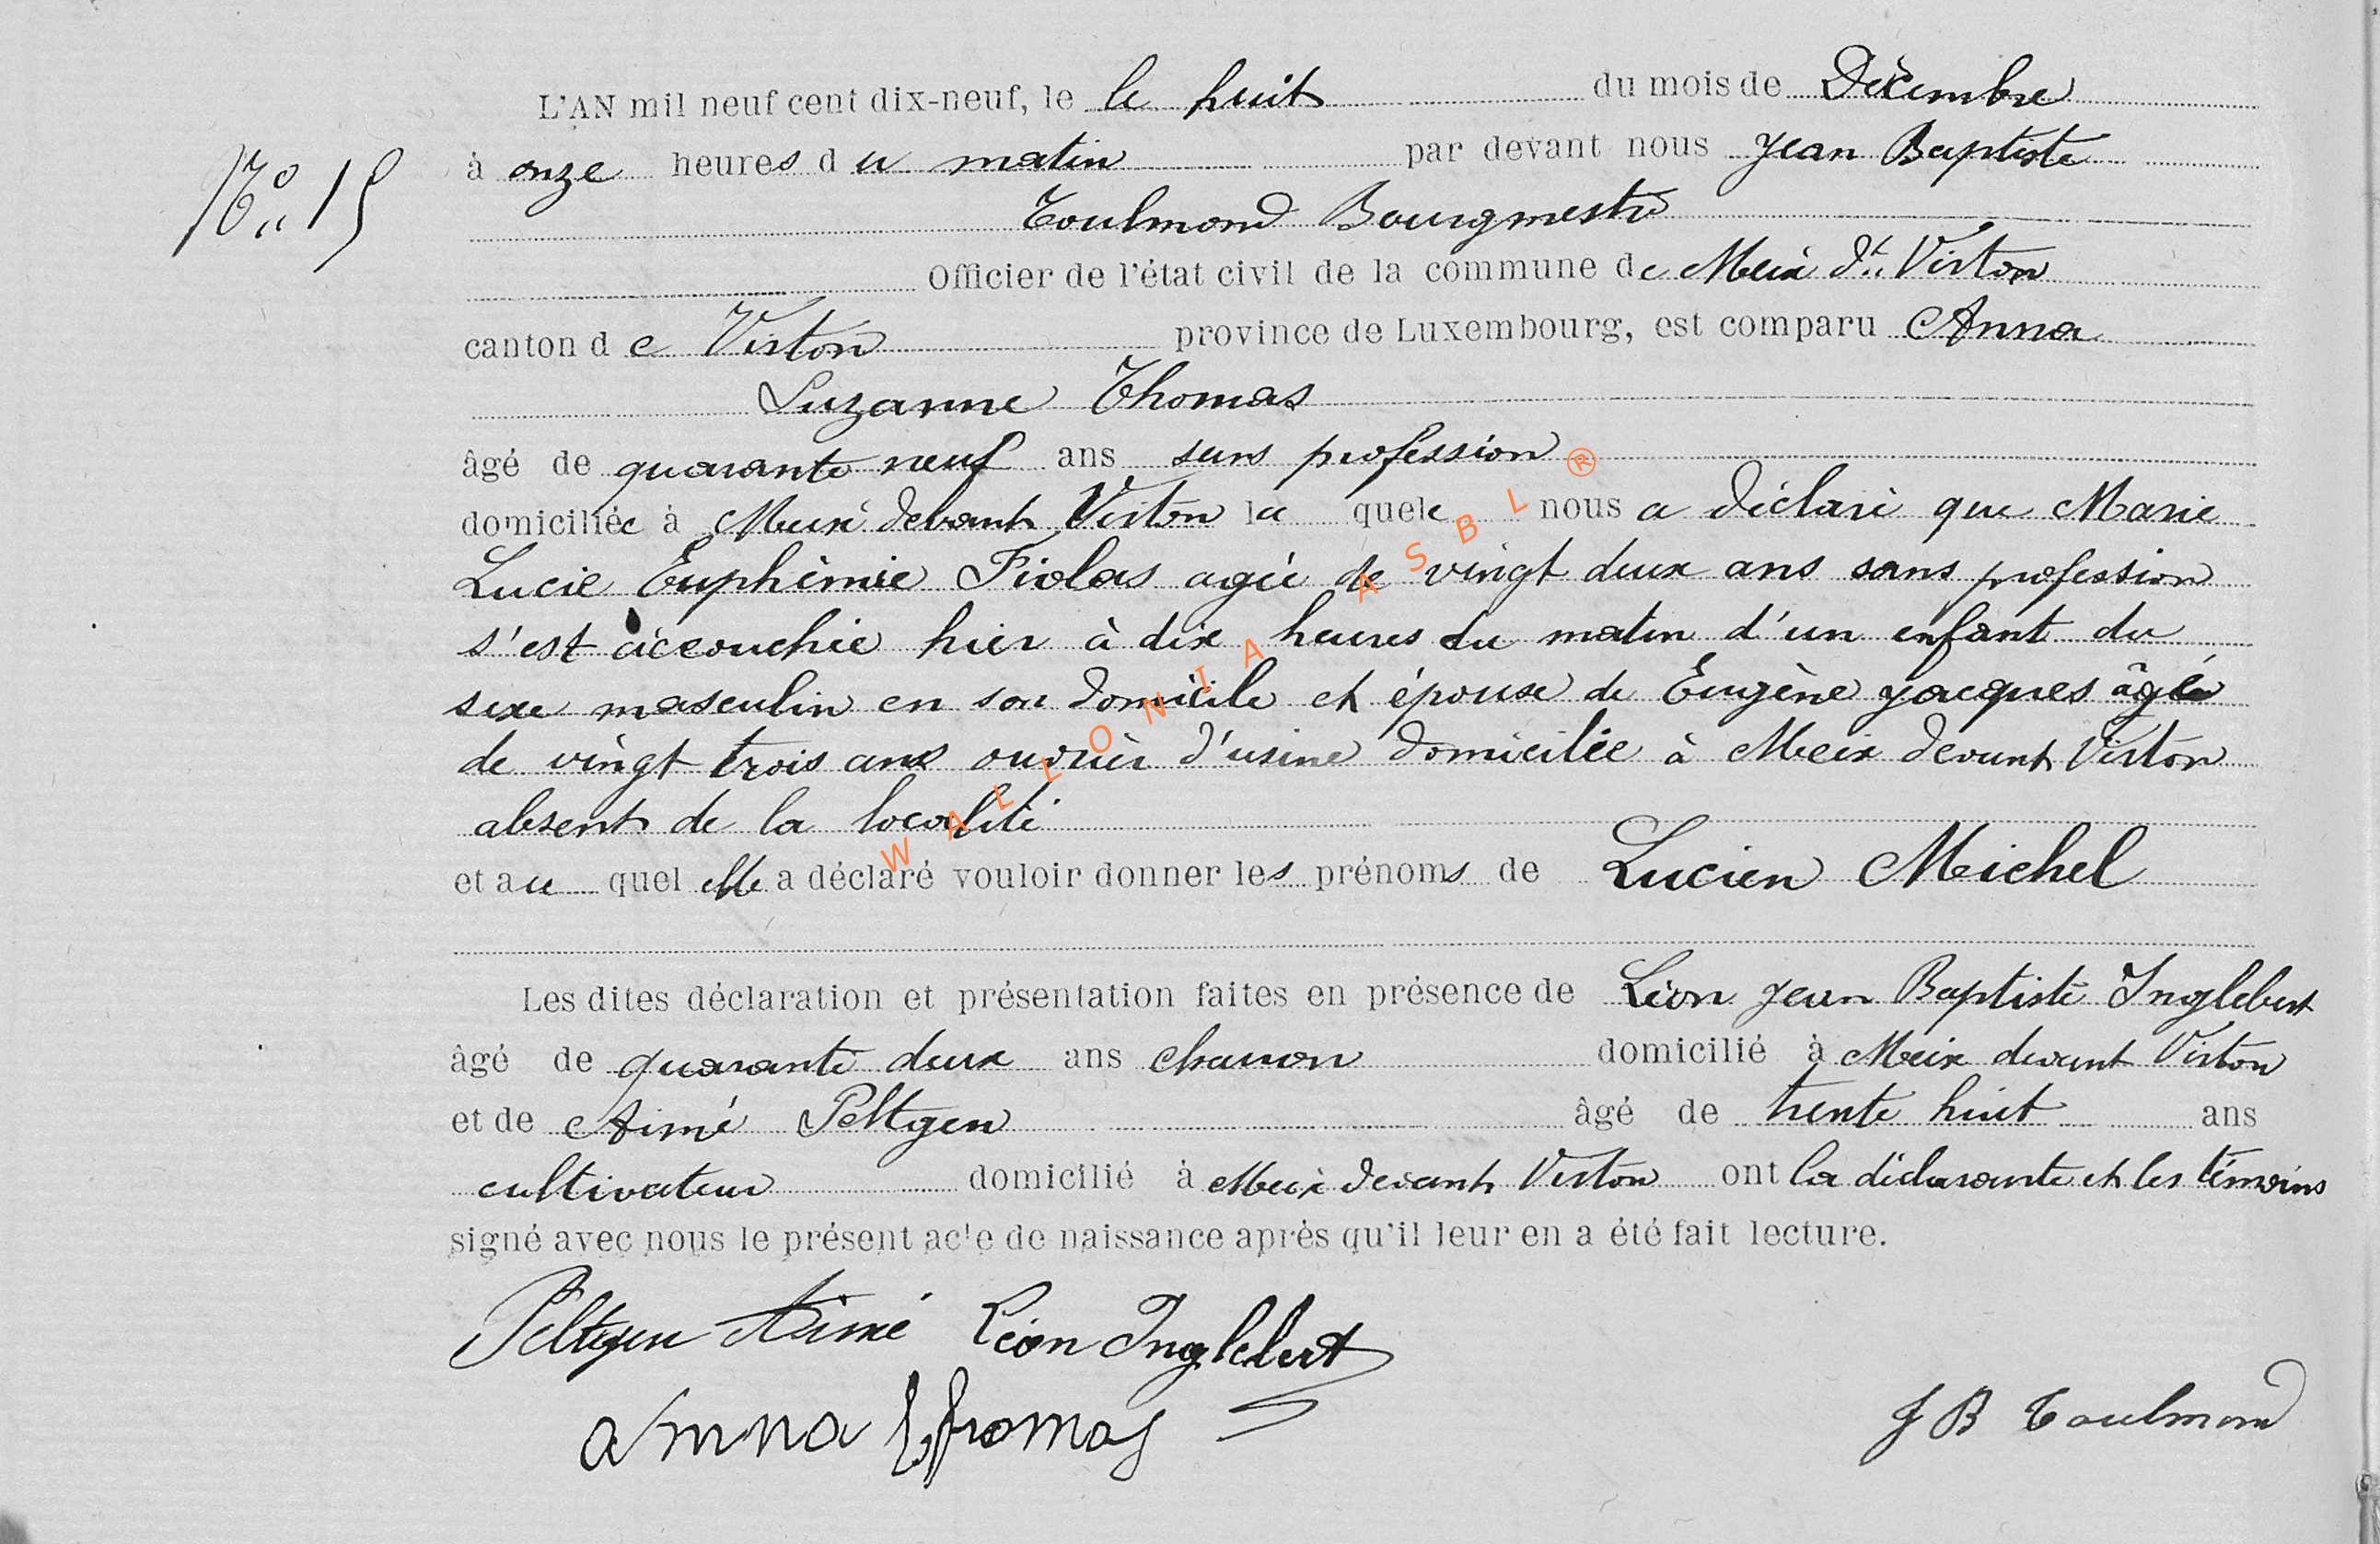 L'AN mil neuf cent dix-neuf, le le huit du mois de Décembre
N° 15
à onze heures du matin par devant nous Jean Baptiste
Toulmond Bourgmestre
Officier de l'état civil de la commune de Meix dt Virton
canton de Virton province de Luxembourg, est comparu Anna
Suzanne Thomas
âgé de quarante neuf ans sans profession
domiciliée à Meix devant Virton la quele nous a déclaré que Marie
Lucie Euphémie Fiolas agée de vingt deux ans sans profession
s'est accouchée hier à dix heures du matin d'un enfant du
sexe masculin en son domicile et épouse de Eugène Jacques âgé
de vingt trois ans ouvrier d'usine domicilée à Meix devant Virton
absent de la localité
et au quel elle a déclaré vouloir donner les prénoms de Lucien Michel
Les dites déclaration et présentation faites en présence de Léon Jean Baptiste Inglebert
âgé de quarante deux ans charron domicilié à Meix devant Virton
et de Aimé Peltgen âgé de trente huit ans
cultivateur domicilié à Meix devant Virton ont la déclarante et les témoins
signé avec nous le présent acte de naissance après qu'il leur en a été fait lecture.
Peltgen Aimé Léon Inglebert
Anna Thomas
J B Toulmond
WALLONIA ASBL ®